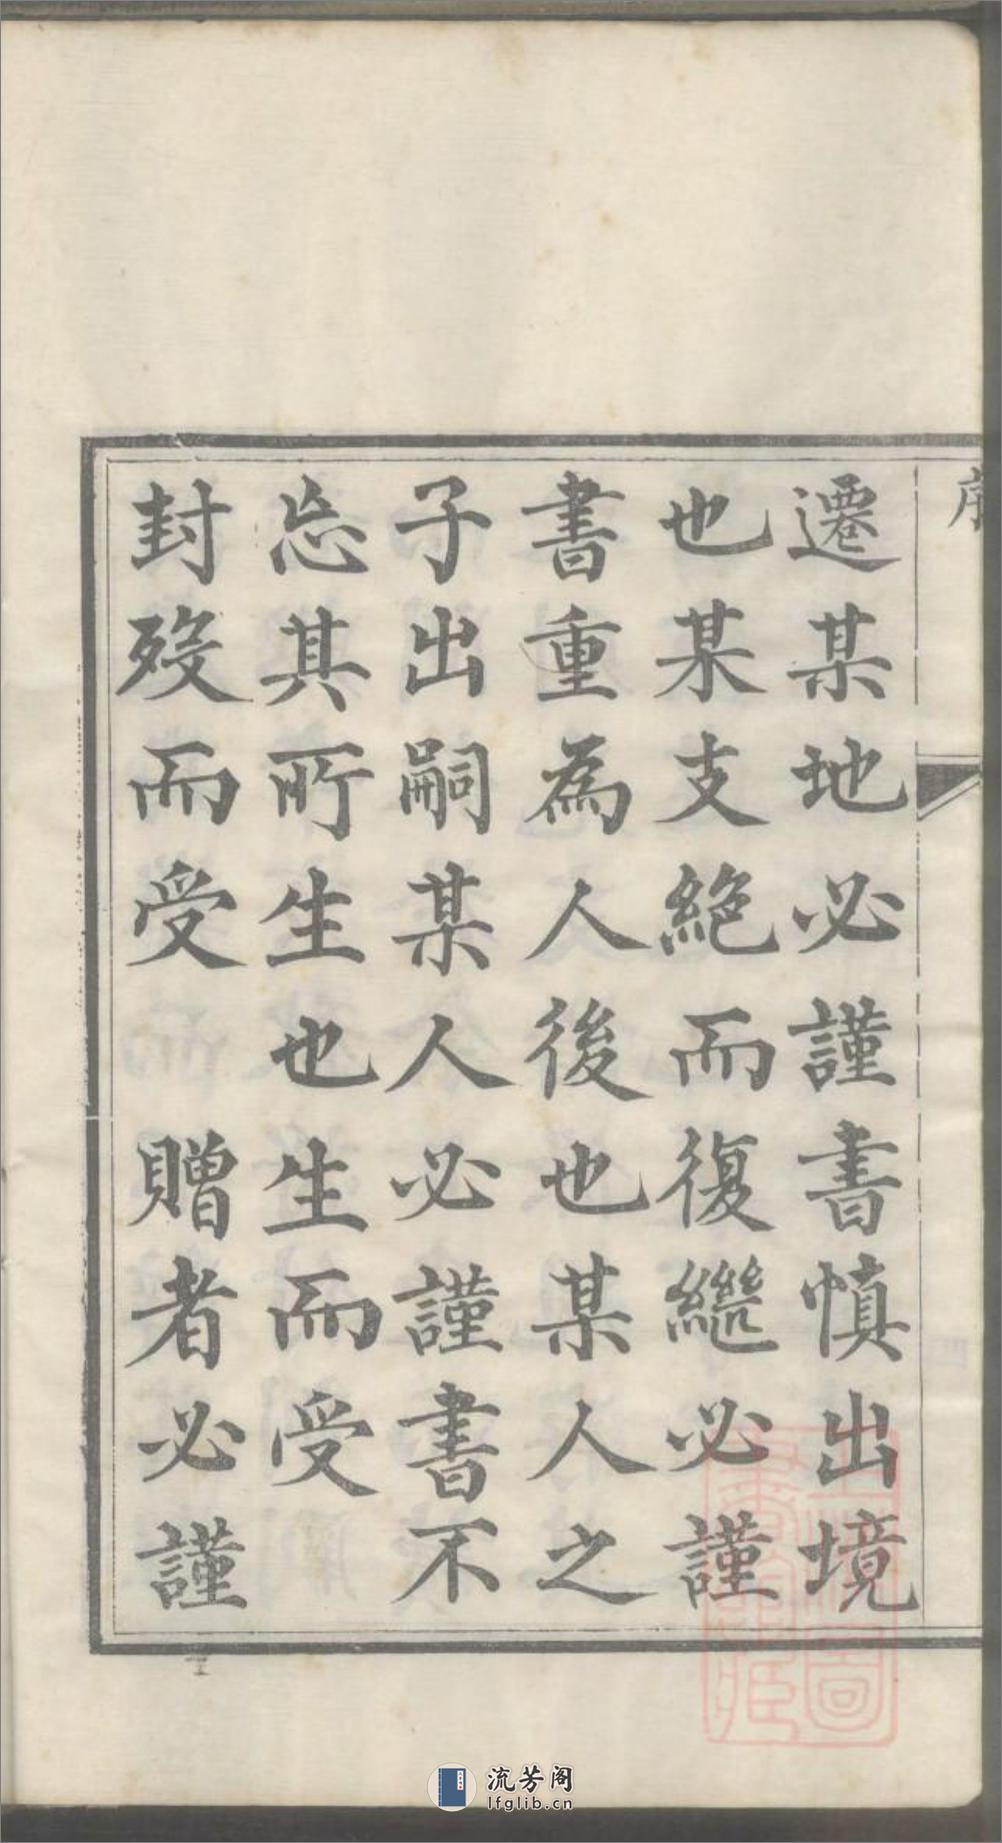 序
遷某地必謹書慎出境
也某支絕而復繼必謹
書重為人後也某人之
子出嗣某人必謹書不
忘其所生也生而受
封歿而受贈者必謹
流芳阁
lfglib.cn